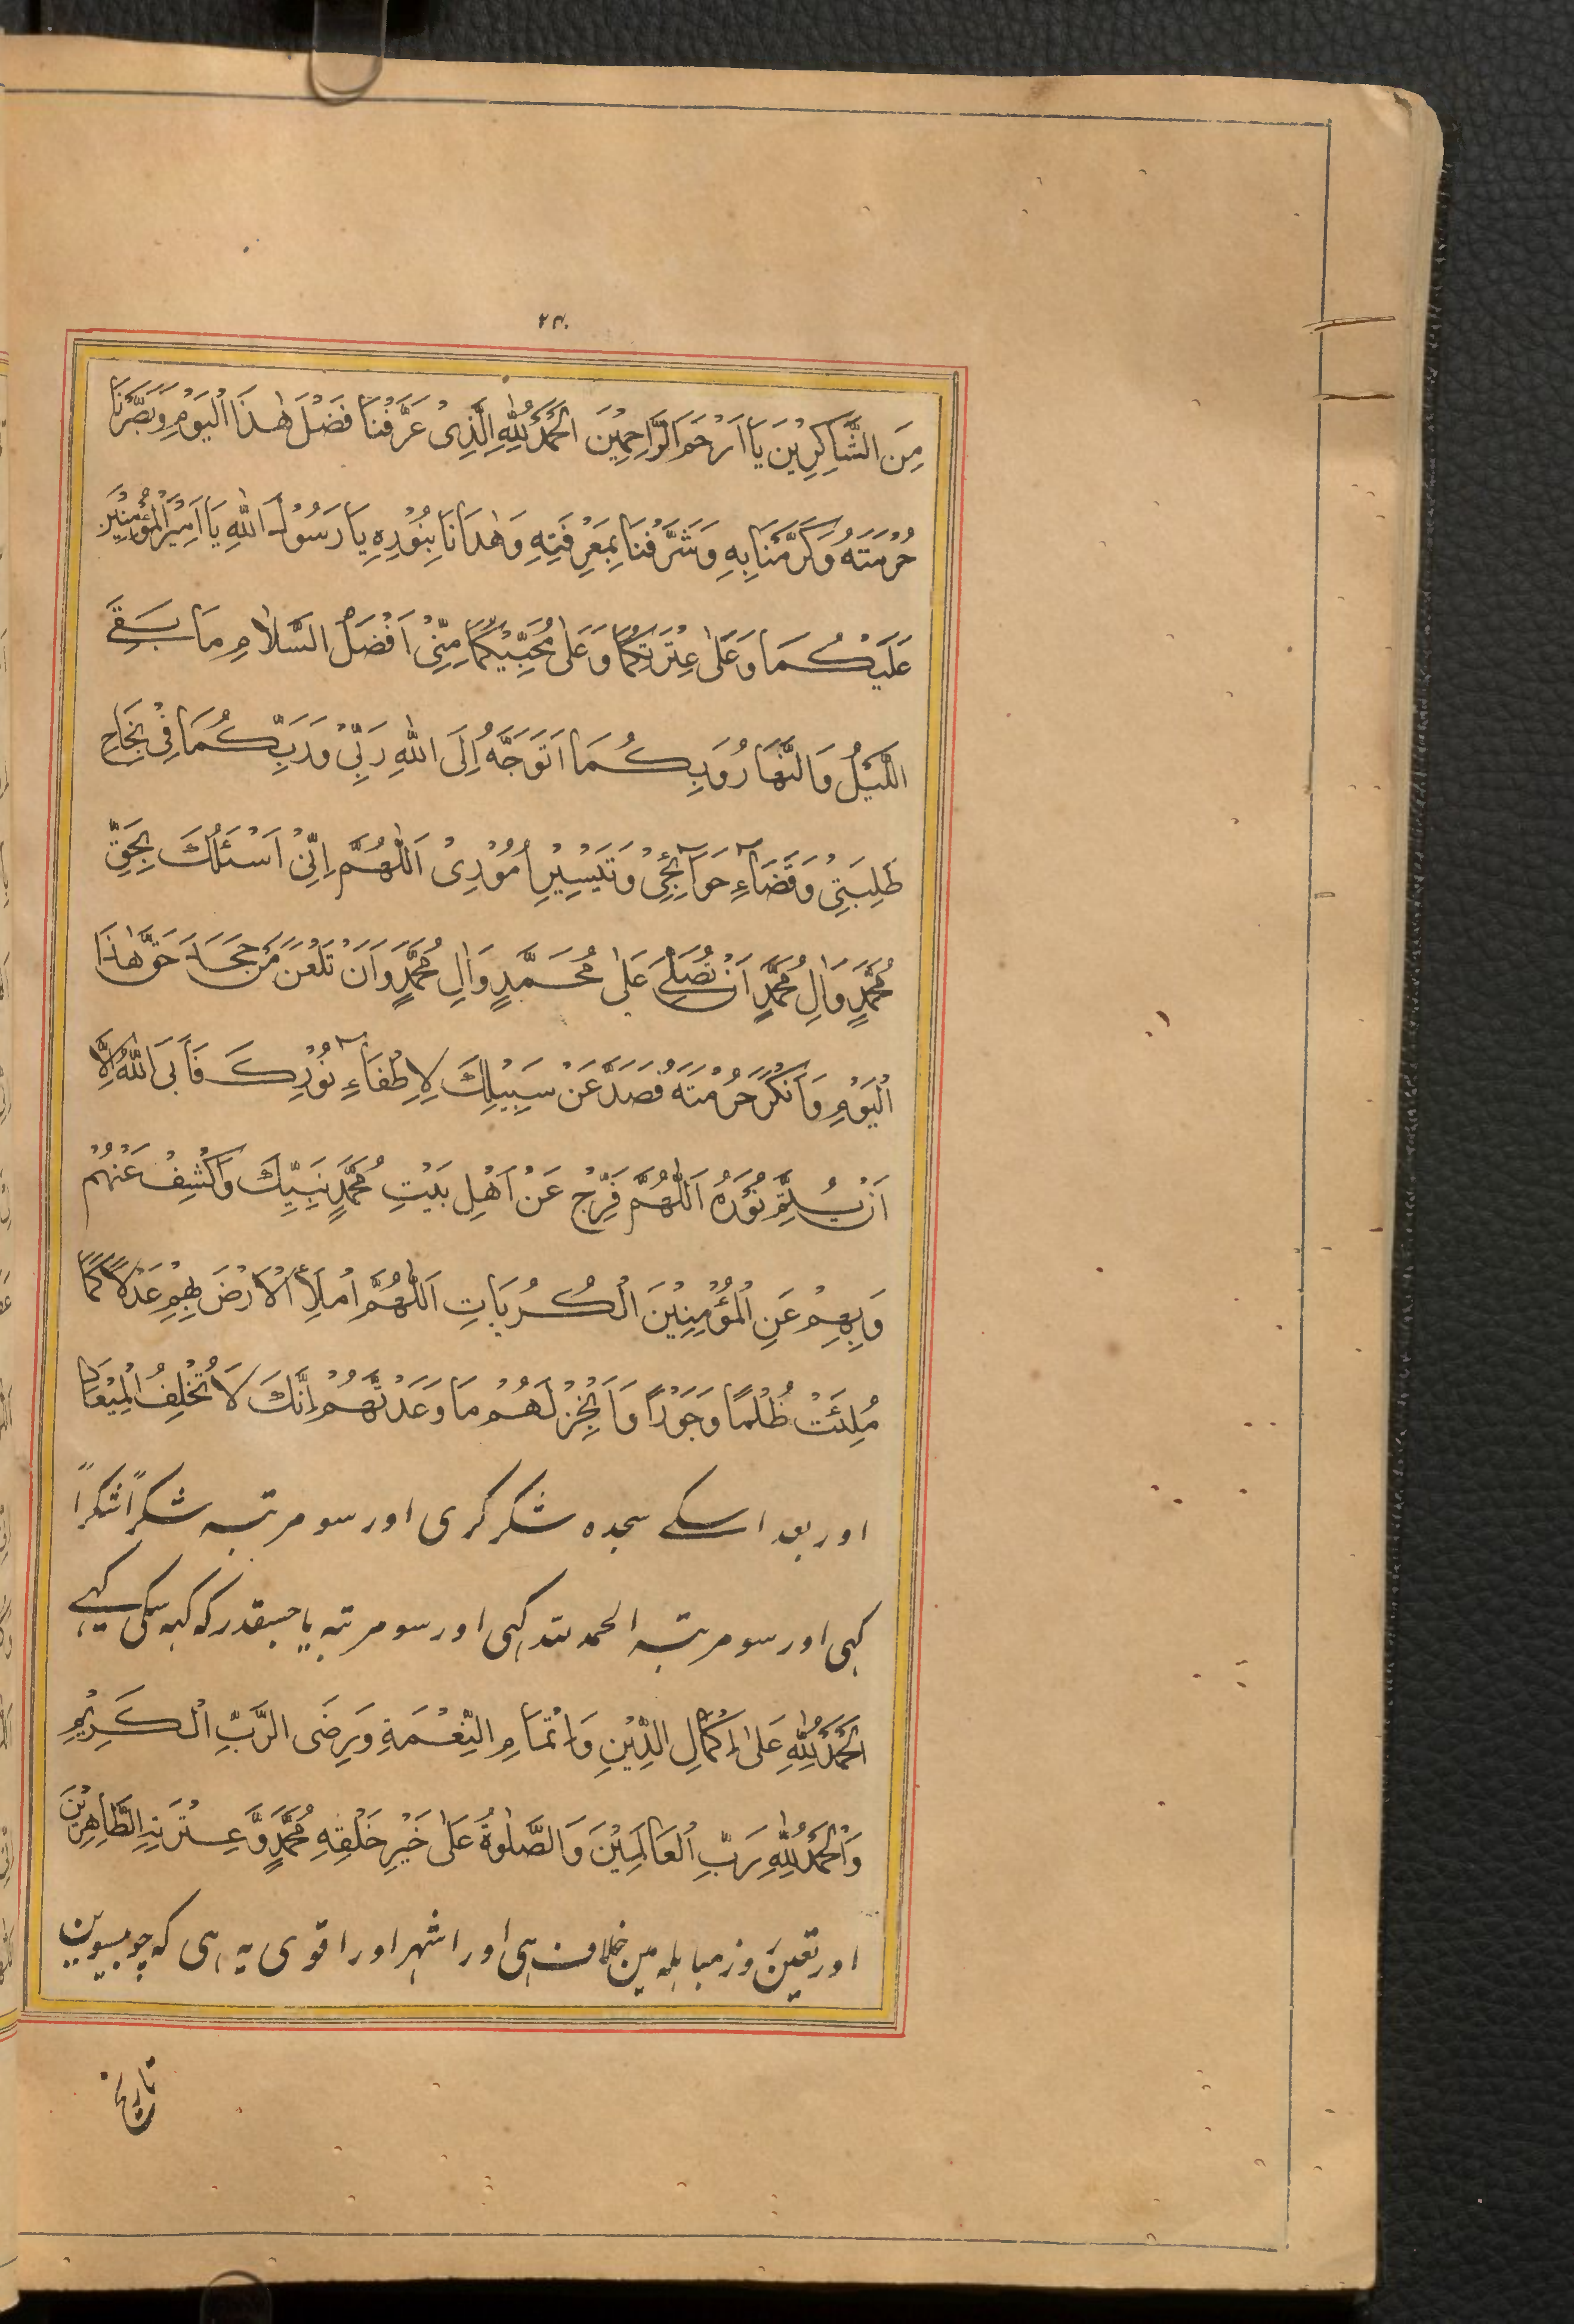 ۲۴۰
مِنَ الشَّاكِرِيْنَ يَا اَرْحَمَ الرَّاحِمِيْنَ اَلْحَمْدُ لِلّٰهِ الَّذِىْ عَرَّفْنَا فَضْلَ هٰذَا الْيَوْمِ وَبَصَّرَنَا
حُرْمَتَهُ وَكَرَّمَنَا بِهِ وَشَرَّفَنَا بِمَعْرِفَتِهِ وَهَدَانَا بِنُوْرِهِ يَا رَسُوْلَ اللّٰهِ يَا اَمِيْرَ الْمُؤْمِنِيْنَ
عَلَيْكُمَا وَعَلٰى عِتْرَتِكُمَا وَعَلٰى مُحِبِّيْكُمَا مِنِّىْ اَفْضَلُ السَّلَامِ مَا بَقِےَ
اللَّيْلُ وَالنَّهَارُ وَبِكُمَا اَتَوَجَّهُ اِلَى اللّٰهِ رَبِّىْ وَرَبِّكُمَا فِىْ نَجَاحِ
طَلِبَتِىْ وَقَضَآءِ حَوَآئِجِىْ وَتَيْسِيْرِ اُمُوْرِىْ اَللّٰهُمَّ اِنِّىْ اَسْئَلُكَ بِحَقِّ
مُحَمَّدٍ وَاٰلِ مُحَمَّدٍ اَنْ تُصَلِّےَ عَلٰى مُحَمَّدٍ وَاٰلِ مُحَمَّدٍ وَاَنْ تَلْعَنَ مَنْ جَحَدَ حَقَّ هٰذَا
الْيَوْمِ وَاَنْكَرَ حُرْمَتَهُ فَصَدَّ عَنْ سَبِيْلِكَ لِاِطْفَآءِ نُوْرِكَ فَاَبَى اللّٰهُ اِلَّا
اَنْ يُتِمَّ نُوْرَهُ اَللّٰهُمَّ فَرِّجْ عَنْ اَهْلِ بَيْتِ مُحَمَّدٍ نَبِيِّكَ وَاكْشِفْ عَنْهُمْ
وَبِهِمْ عَنِ الْمُؤْمِنِيْنَ الْكُرُبَاتِ اَللّٰهُمَّ امْلَأِ الْاَرْضَ بِهِمْ عَدْلًا كَمَا
مُلِئَتْ ظُلْمًا وَجَوْرًا وَاَنْجِزْ لَهُمْ مَا وَعَدْتَهُمْ اِنَّكَ لَا تُخْلِفُ الْمِيْعَادَ
اور بعد اسکے سجدہ شکر کری اور سو مرتبہ شکراً شکراً
کہی اور سو مرتبہ الحمد للہ کہی اور سو مرتبہ یا جسقدر کہ کہہ سکی کہیے
اَلْحَمْدُ لِلّٰهِ عَلٰى اِكْمَالِ الدِّيْنِ وَاِتْمَامِ النِّعْمَةِ وَرِضَى الرَّبِّ الْكَرِيْمِ
وَالْحَمْدُ لِلّٰهِ رَبِّ الْعَالَمِيْنَ وَالصَّلٰوةُ عَلٰى خَيْرِ خَلْقِهِ مُحَمَّدٍ وَّعِتْرَتِهِ الطَّاهِرِيْنَ
اور تعین روز مباہلہ مین خلاف ہی اور اشہر اور اقوی یہ ہی کہ چوبیسوین
تاریخ